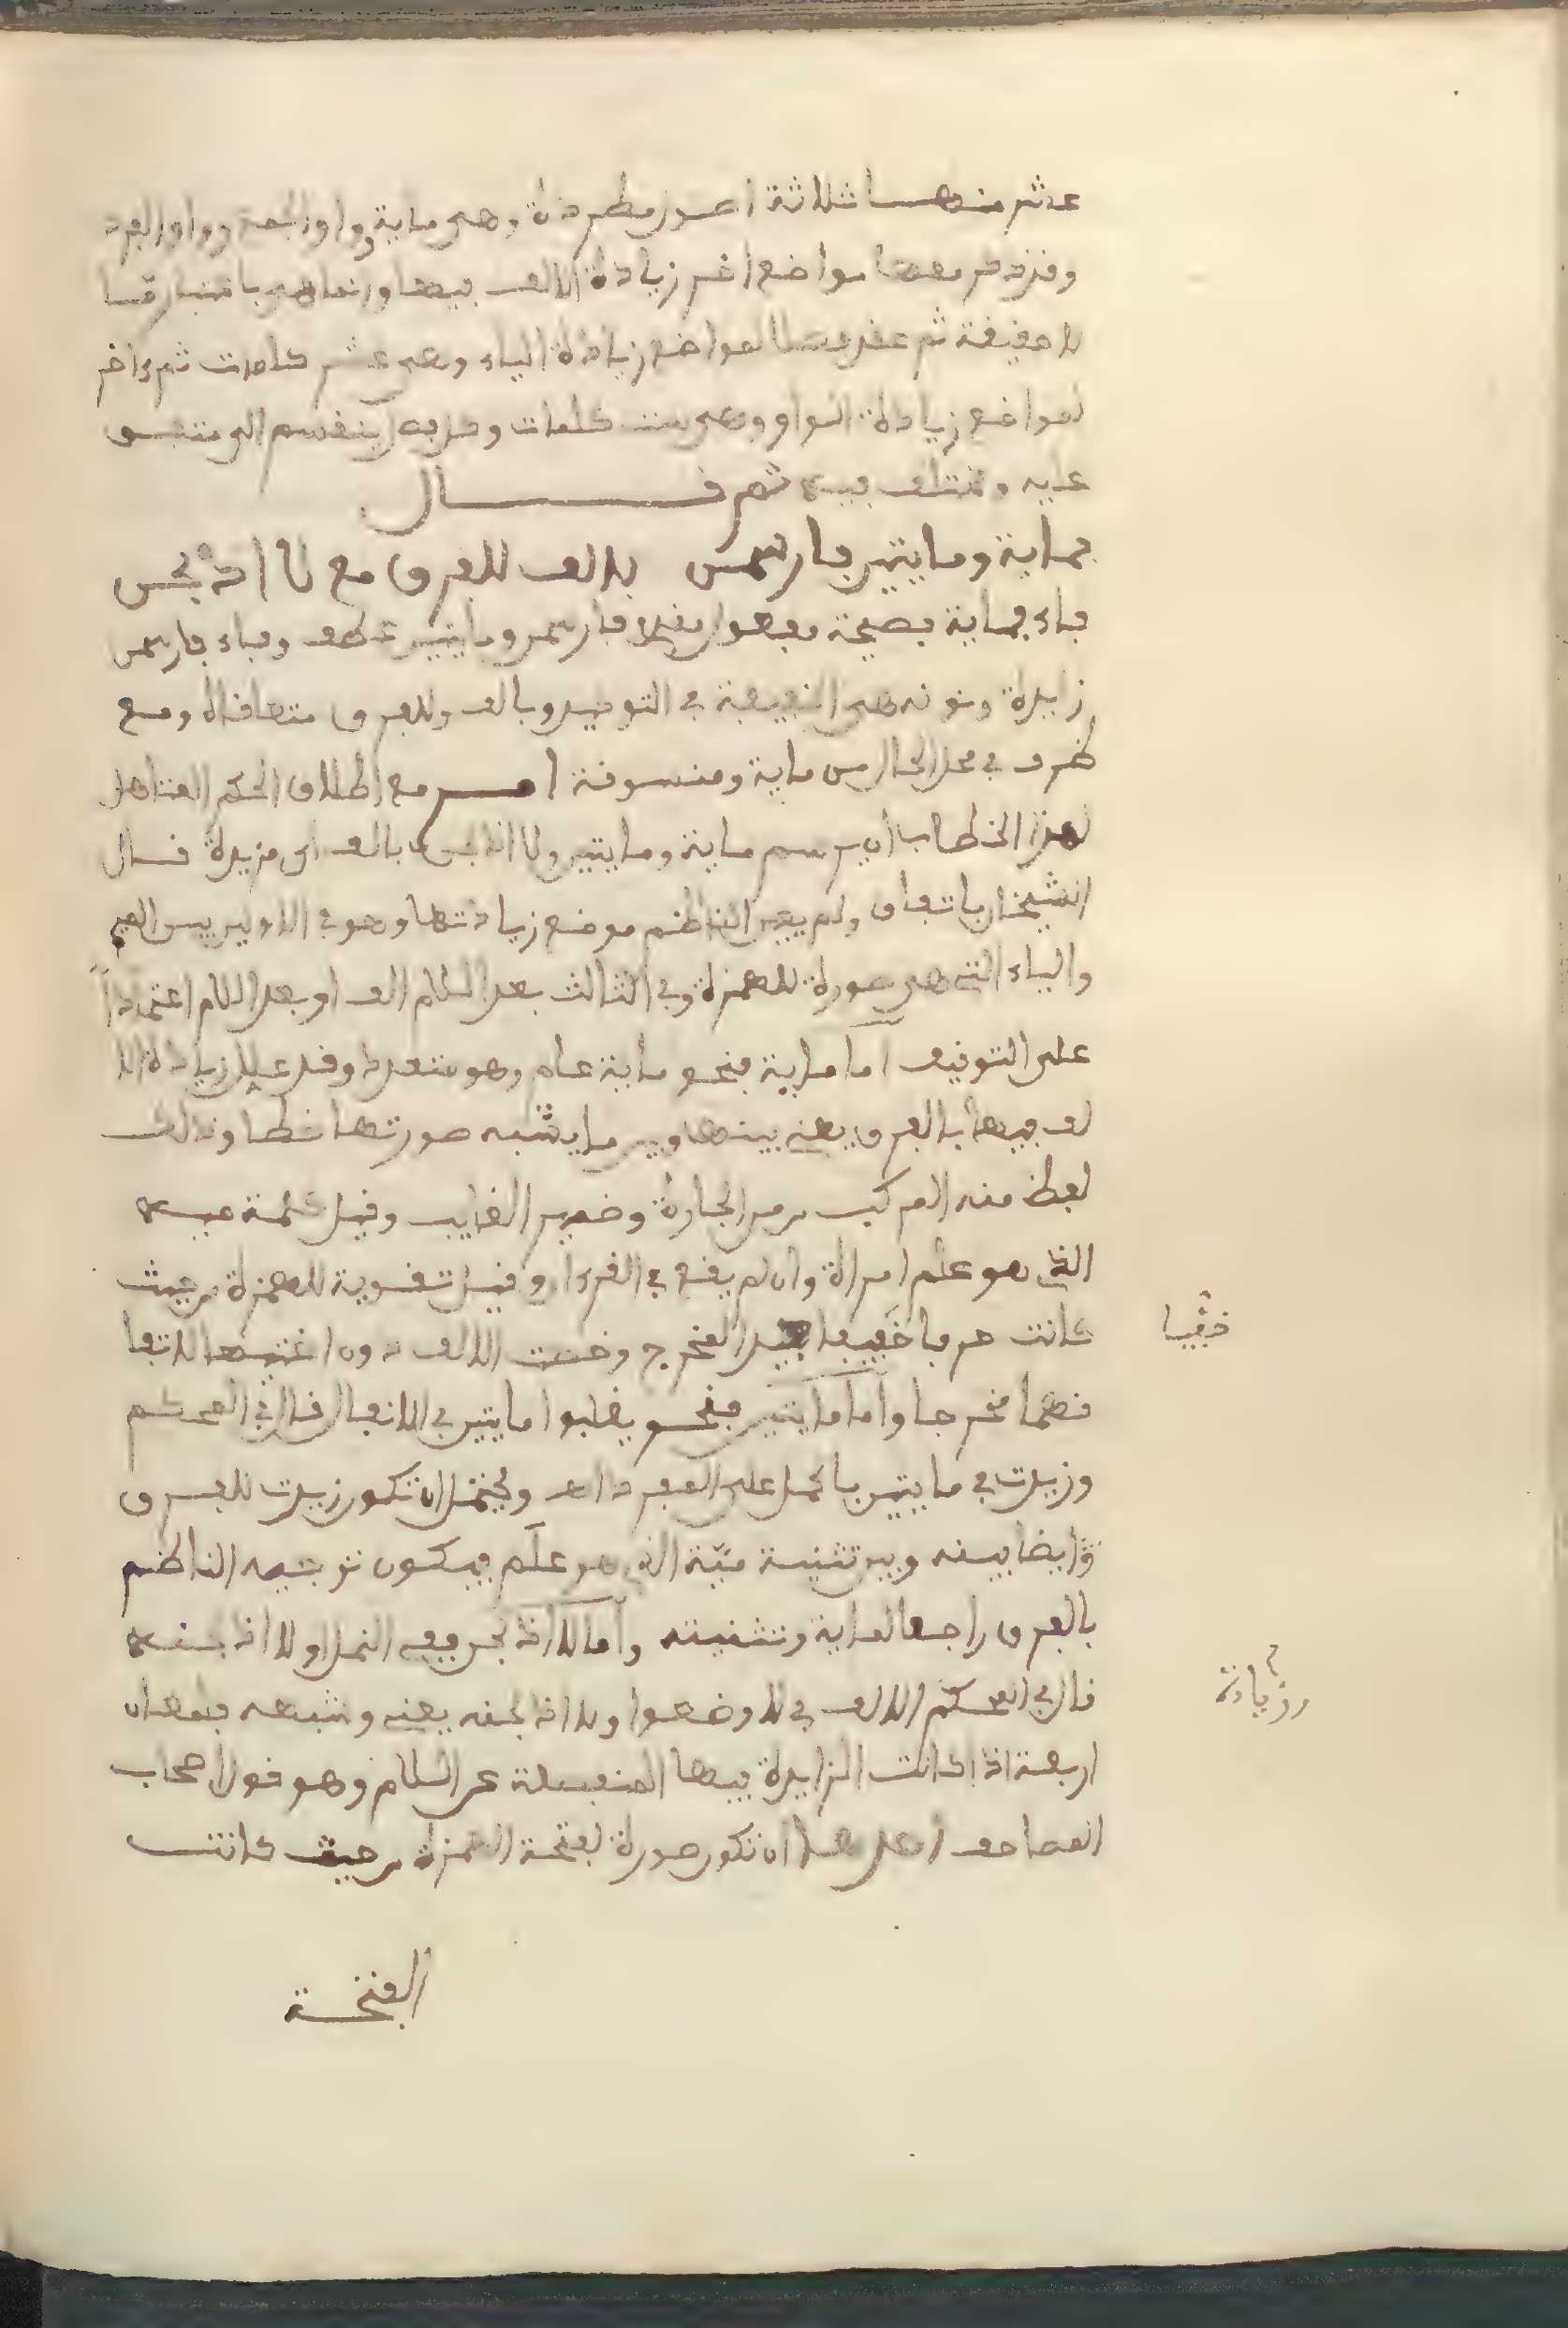 عشر منها ثلاثة اصول مطردة وهي ماية وواو الجمع وواو الفرد
وقدم معها مواضع اخر زيادة الالف فيها وانما هي باعتبار ما
لا حقيقة ثم عقد فصلا لمواضع زيادة الياء وهي عشر كلمات ثم اخر
لمواضع زيادة الواو وهي ست كلمات وينقسم الى متفق
عليه ومختلف فيه ثم قال
فماية ومايتين فارسمن بالف للفرق مع لا اذبحن
فاء فماية فصيحة ومايتين عطف وفاء فارسمن
زايدة ونونه هي الخفيفة في التوكيد وبالف وللفرق متعلقاه ومع
ظرف في محل الحال من ماية ومنسوقه امر مع اطلاق الحكم المتاهل
لهذا الخطاب ان يرسم ماية ومايتين ولا اذبحن بالف اي مزيدة قال
الشيخان باتفاق ولم يعين الناظم موضع زيادتها وهو في الاولين بين الميم
والياء التي هي صورة للهمزة وفي الثالث بعد اللام الف او بعد اللام اعتمادا
على التوقيف اما ماية فنحو ماية عام وهو متعدد وقد علل زيادة الا
لف فيها بالفرق يعني بينها وبين ما يشبه صورتها خطا وذلك
لفظ منه المركب من من الجارة وضمير الغايب وقيل كلمة مية
الذي هو علم امراة وان لم يقع في القرءان وقيل تقوية للهمزة من حيث
كانت حرفا خفيفا بعيد المخرج وخصت الالف دون اختيها لاتفا
قهما مخرجا واما مايتين فنحو يغلبوا مايتين في الانفال قال في المحكم
وزيدت في مايتين بالحمل على المفرد اهـ ويحتمل ان تكون زيدت للفرق
ايضا بينه وبين تثنية ميّة الذي هو علم فيكون توجيه الناظم
بالفرق راجعا لماية وتثنيته واما لا اذبحن ففي النمل او لا اذبحنه
قال في المحكم الالف في لا وضعوا ولا اذبحنه يعني وشبهه فلمعان
اربعة اذا كانت الزايدة فيها المنفصلة عن اللام وهو قول اصحاب
المصاحف احدها ان تكون صورة لفتحة الهمزة من حيث كانت
الفتحة
خفيا
وزيادة